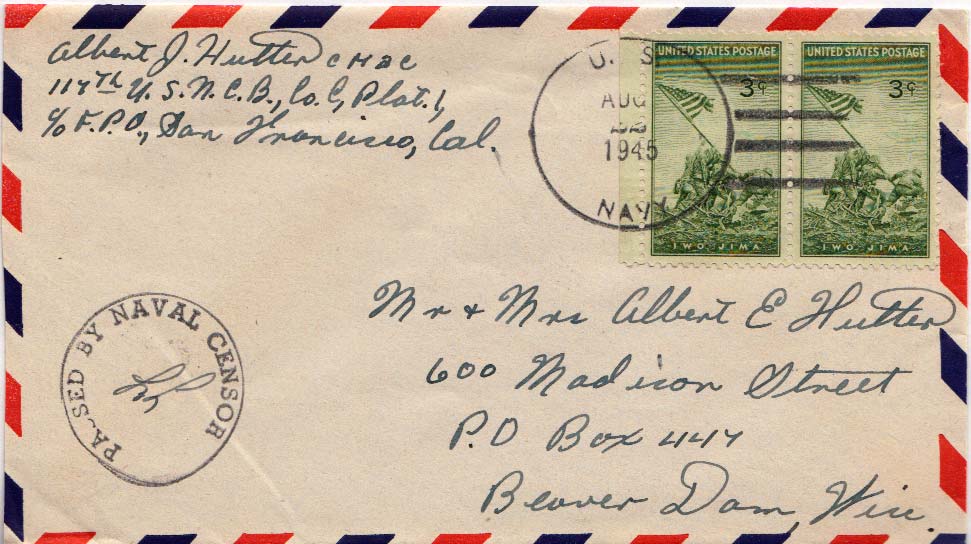 Albert J. Hutter CM2C
117th U.S.N.C.B., Co. C, Plat. 1,
c/o F.P.O., San Francisco, Cal.
U. S.
AUG
22
1945
NAVY
UNITED STATES POSTAGE
3¢
IWO JIMA
UNITED STATES POSTAGE
3¢
IWO JIMA
Mr & Mrs Albert E Hutter
600 Madison Street
P.O Box 447
Beaver Dam, Wis.
PASSED BY NAVAL CENSOR